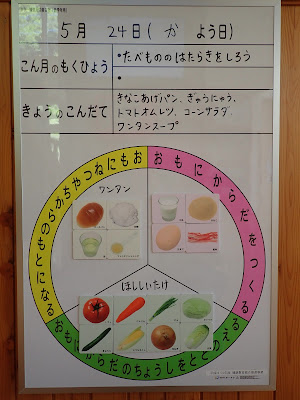 5月 24日(か よう日)
こん月のもくひょう
•たべもののはたらきをしろう
•
きょうのこんだて
きなこあげパン、ぎゅうにゅう、
トマトオムレツ、コーンサラダ、
ワンタンスープ
おもにねつやちからのもとになる
おもにからだをつくる
ワンタン
ほししいたけ
おもにからだのちょうしをととのえる